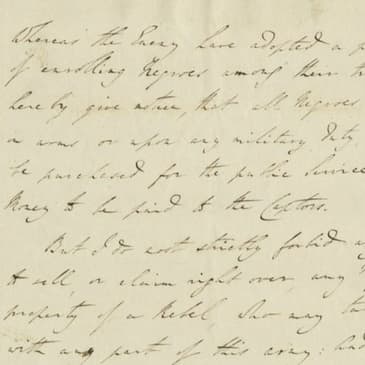 Whereas the Enemy have adopted a p
of enrolling Negroes among their tr
hereby give notice, that all Negroes
in arms or upon any military Duty
be purchased for the public Service
Money to be paid to the Captors.
But I do most strictly forbid a
to sell or claim right over any
property of a Rebel who may ta
with any part of this army: And